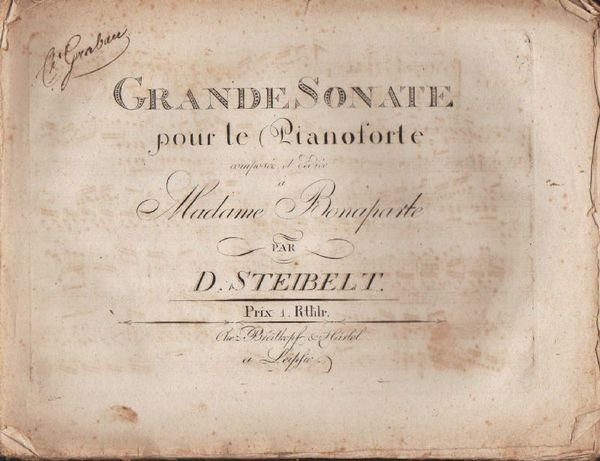 Grabau
GRANDE SONATE
pour le Pianoforte
composée et dédiée
à
Madame Bonaparte
PAR
D. STEIBELT.
Prix 1. Rthlr.
Chez Breitkopf & Härtel
à Leipsic